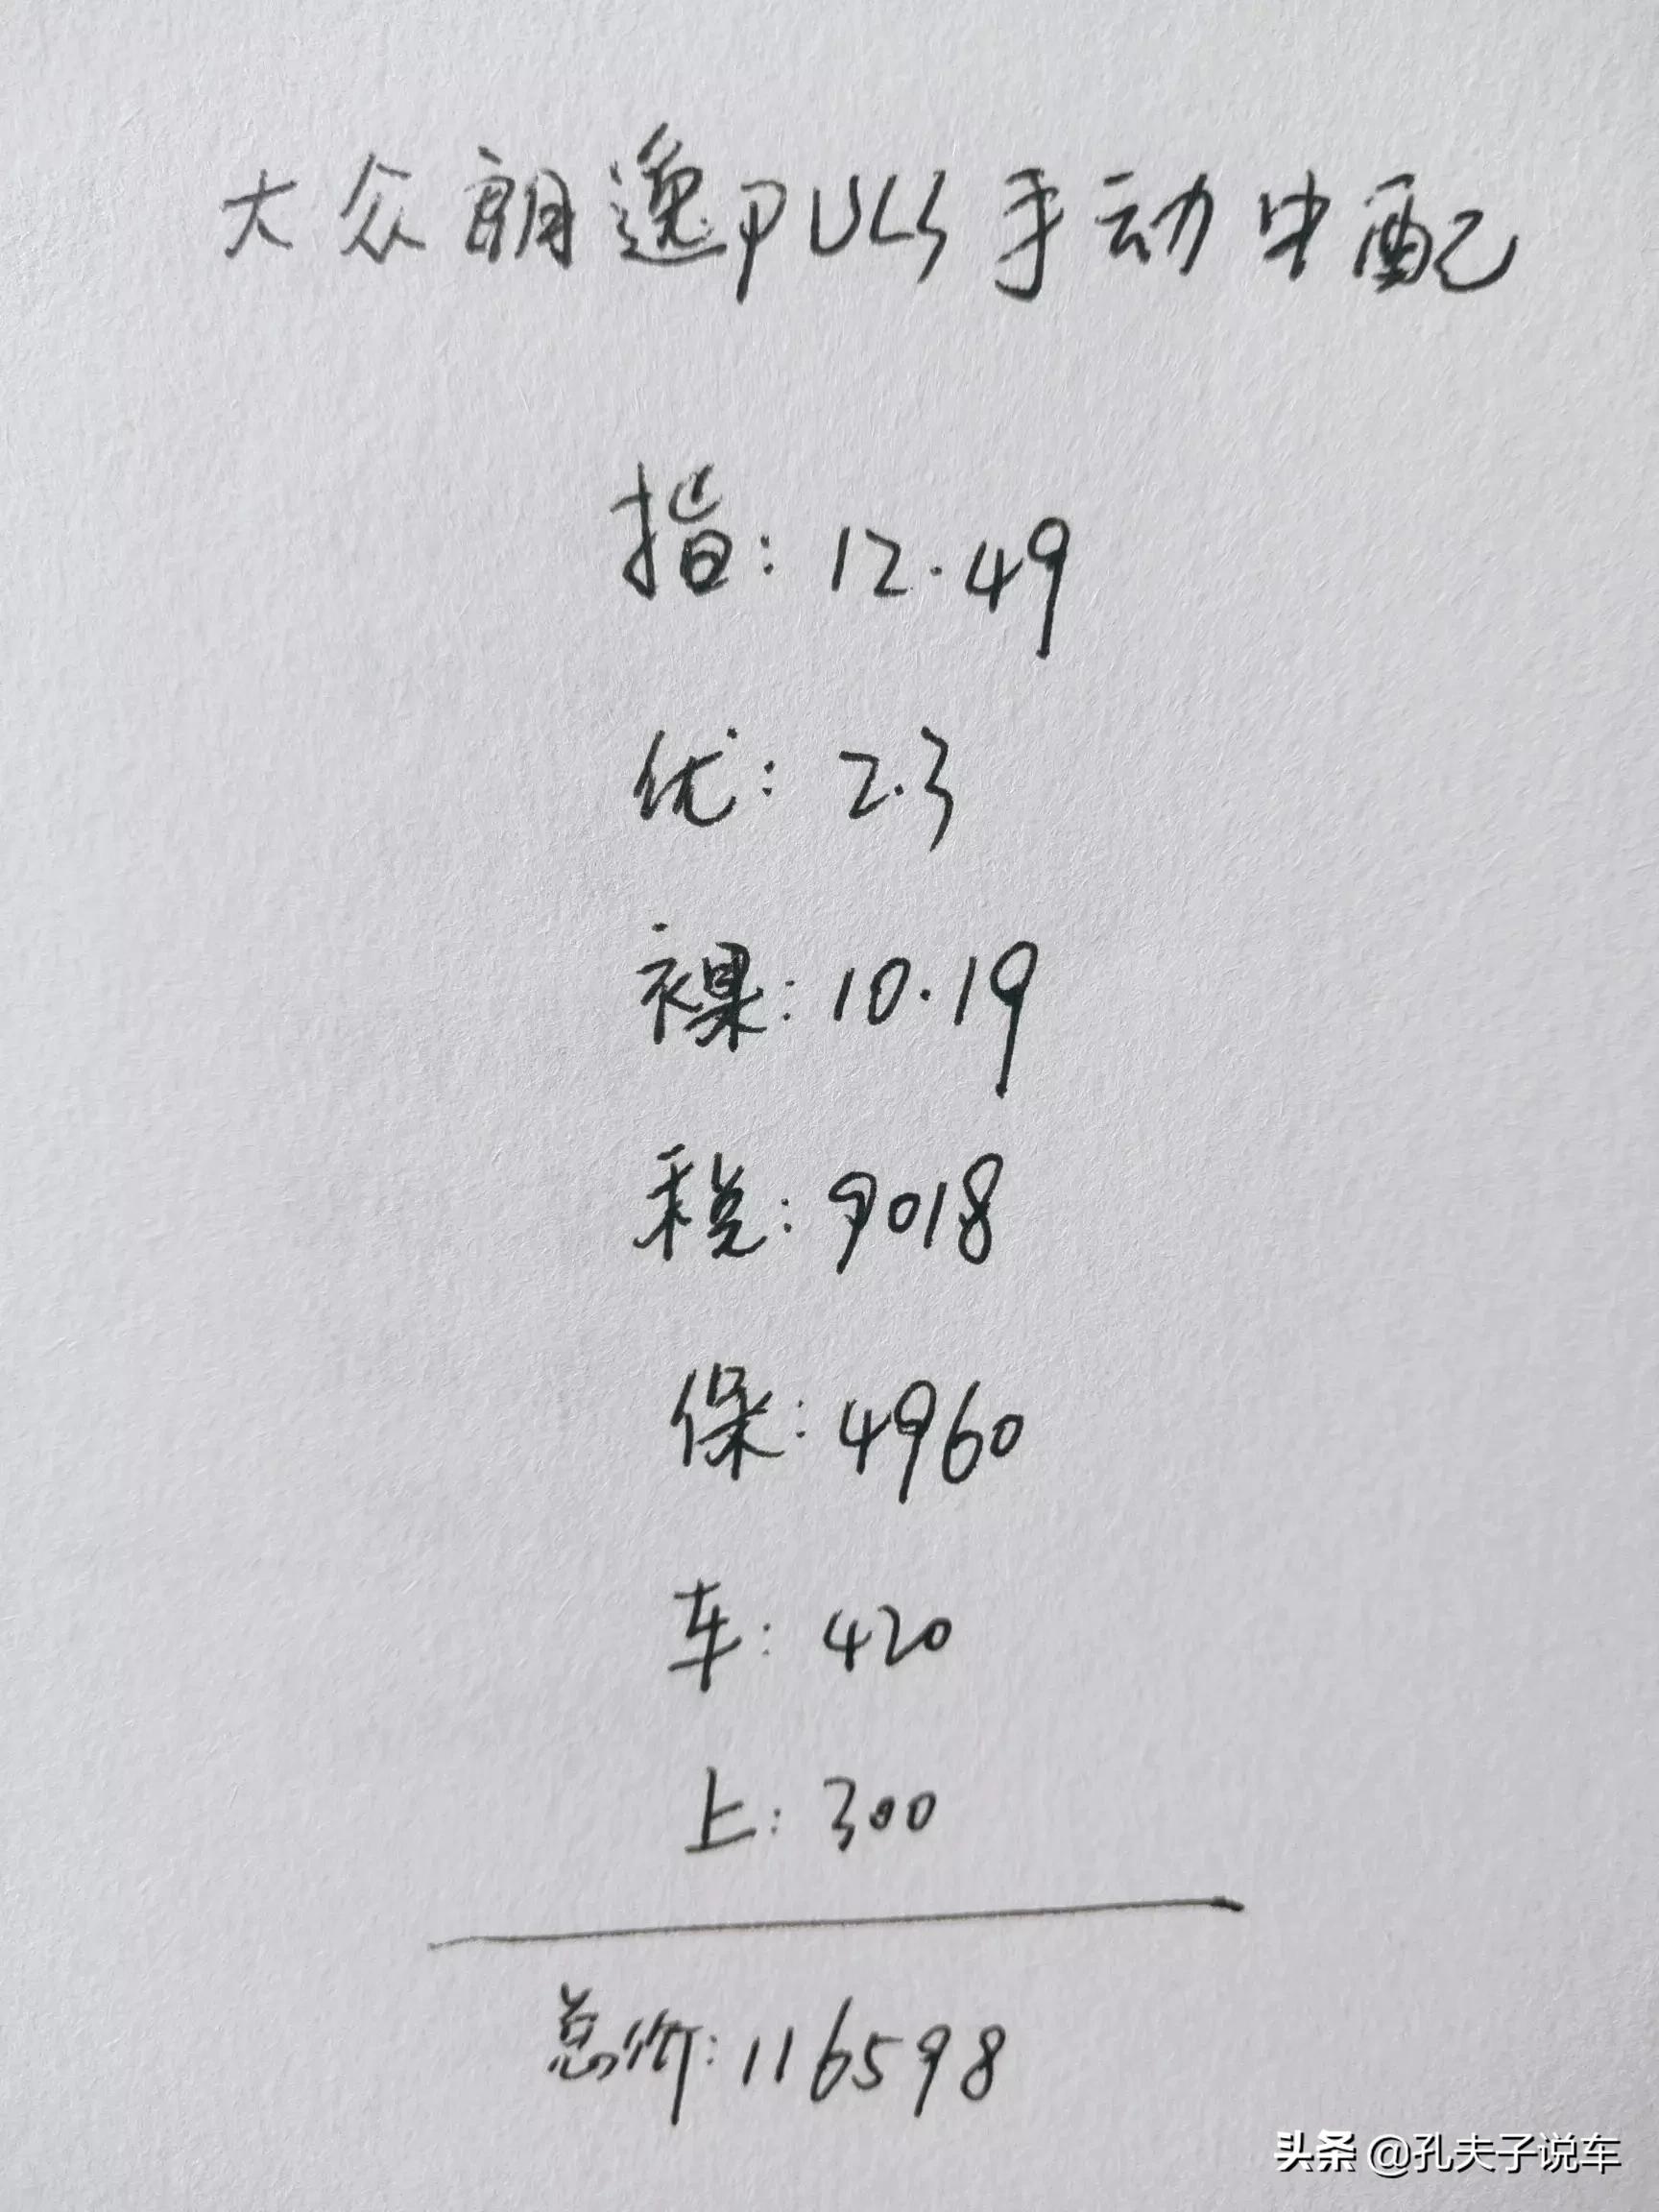 大众朗逸PULS手动中配
指:12.49
优:2.3
裸:10.19
税:9018
保:4960
车:420
上:300
总价:116598
头条 @孔夫子说车